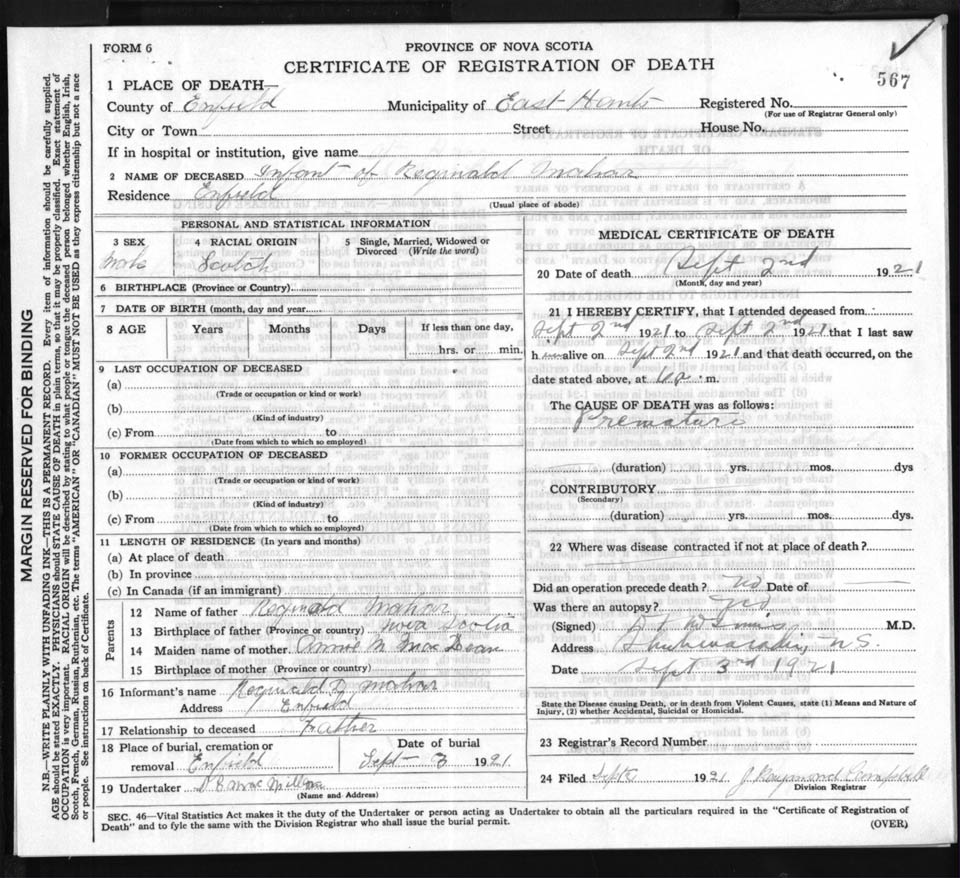 FORM 6
PROVINCE OF NOVA SCOTIA
CERTIFICATE OF REGISTRATION OF DEATH
567
1 PLACE OF DEATH—
County of Enfield Municipality of East Hants Registered No.
(For use of Registrar General only)
City or Town Street House No.
If in hospital or institution, give name
2 NAME OF DECEASED Infant of Reginald Mahar
Residence Enfield
(Usual place of abode)
PERSONAL AND STATISTICAL INFORMATION
3 SEX 4 RACIAL ORIGIN 5 Single, Married, Widowed or Divorced (Write the word)
Male Scotch
6 BIRTHPLACE (Province or Country)
7 DATE OF BIRTH (month, day and year)
8 AGE Years Months Days If less than one day,
hrs. or min.
9 LAST OCCUPATION OF DECEASED
(a)
(Trade or occupation or kind of work)
(b)
(Kind of industry)
(c) From to
(Date from which to which so employed)
10 FORMER OCCUPATION OF DECEASED
(a)
(Trade or occupation or kind of work)
(b)
(Kind of industry)
(c) From to
(Date from which to which so employed)
11 LENGTH OF RESIDENCE (In years and months)
(a) At place of death
(b) In province
(c) In Canada (if an immigrant)
Parents
12 Name of father Reginald Mahar
13 Birthplace of father (Province or country) Nova Scotia
14 Maiden name of mother Annie M
15 Birthplace of mother (Province or country)
16 Informant's name Reginald Mahar
Address Enfield
17 Relationship to deceased Father
18 Place of burial, cremation or removal Enfield
Date of burial
Sept 3 1921
19 Undertaker
(Name and Address)
MEDICAL CERTIFICATE OF DEATH
20 Date of death Sept 2nd 1921
(Month, day and year)
21 I HEREBY CERTIFY, that I attended deceased from
Sept 2nd 1921 to Sept 2nd 1921 that I last saw
h alive on Sept 2nd 1921 and that death occurred, on the
date stated above, at m.
The CAUSE OF DEATH was as follows:
Premature
(duration) yrs. mos. dys
CONTRIBUTORY
(Secondary)
(duration) yrs. mos. dys.
22 Where was disease contracted if not at place of death?
Did an operation precede death? no Date of
Was there an autopsy? no
(Signed) M.D.
Address Shubenacadie, N.S.
Date Sept 3rd 1921
State the Disease causing Death, or in death from Violent Causes, state (1) Means and Nature of
Injury, (2) whether Accidental, Suicidal or Homicidal.
23 Registrar's Record Number
24 Filed Sept 1921 J Raymond Campbell
Division Registrar
SEC. 46—Vital Statistics Act makes it the duty of the Undertaker or person acting as Undertaker to obtain all the particulars required in the "Certificate of Registration of
Death" and to fyle the same with the Division Registrar who shall issue the burial permit.
(OVER)
MARGIN RESERVED FOR BINDING
N.B. WRITE PLAINLY WITH UNFADING INK—THIS IS A PERMANENT RECORD. Every item of information should be carefully supplied.
AGE should be stated EXACTLY. PHYSICIANS should STATE CAUSE OF DEATH in plain terms, so that it may be properly classified. Exact statement of
OCCUPATION is very important. RACIAL ORIGIN will be described by stating to what people or tongue the deceased person belonged whether English, Irish,
Scotch, French, German, Russian, Ruthenian, etc. The terms "AMERICAN" OR "CANADIAN" MUST NOT BE USED as they express citizenship but not a race
or people. See instructions on back of Certificate.